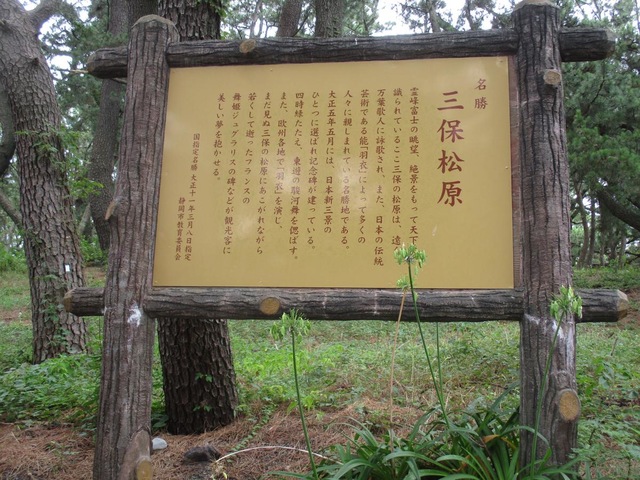 名勝
三保松原
霊峰富士の眺望、絶景をもって天下に
識られているここ三保の松原は、遠
万葉歌人に詠歌され、また、日本の伝統
芸術である能「羽衣」によって多くの
人々に親しまれている名勝地である。
大正五年五月には、日本新三景の
ひとつに選ばれ記念碑が建っている。
四時緑たたえ、東遊の駿河舞を偲ばす。
また、欧州各地で「羽衣」を演じ、
まだ見ぬ三保の松原にあこがれながら
若くして逝ったフランスの
舞姫ジュグラリスの碑などが観光客に
美しい夢を抱かせる。
国指定名勝 大正十一年三月八日指定
静岡市教育委員会